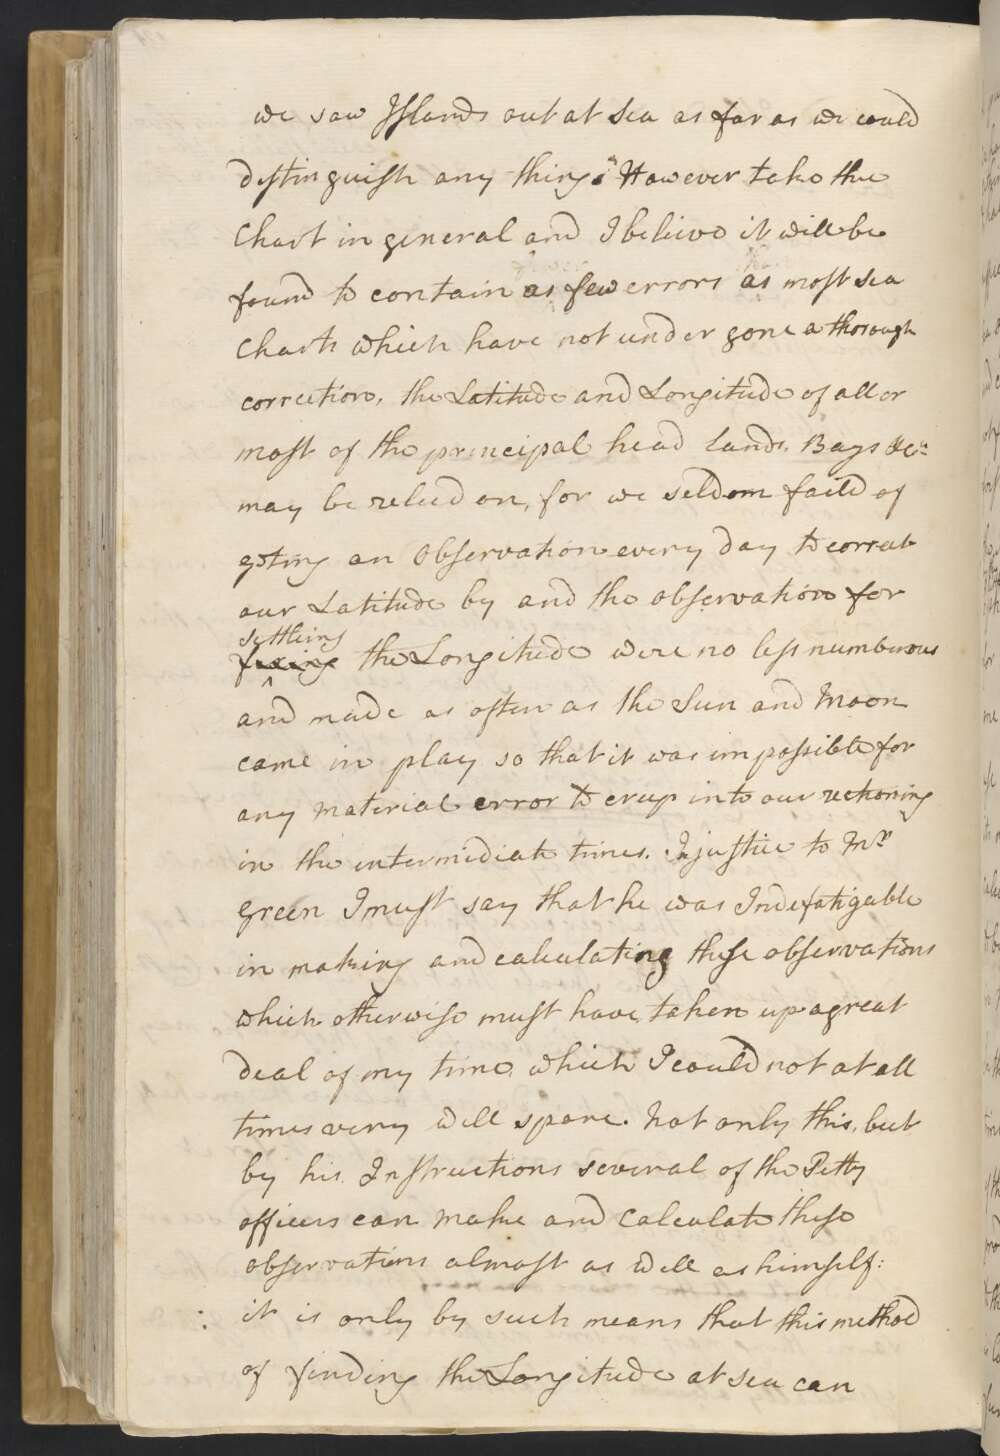 we saw Islands out at Sea as far as we could
distinguish any thing. However take the
Chart in general and I believe it will be
found to contain as few errors as most Sea
Charts which have not under gone a thorough
correction, the Latitude and Longitude of all or
most of the principal head lands, Bays &ca
may be relied on, for we seldom faild of
geting an Observation every day to correct
our Latitude by and the observation for
settling
fixing the Longitude were no less numberous
and made as often as the Sun and Moon
came in play so that it was impossible for
any material error to creep into our reckoning
in the intermidiate times. In justice to Mr
Green I must say that he was Indefatigable
in making and calculating these observations
which otherwise must have taken up a great
deal of my time, which I could not at all
times very well spare. Not only this, but
by his Instructions several of the Petty
officers can make and Calculate these
observations almost as well as himself:
it is only by such means that this method
of finding the Longitude at Sea can